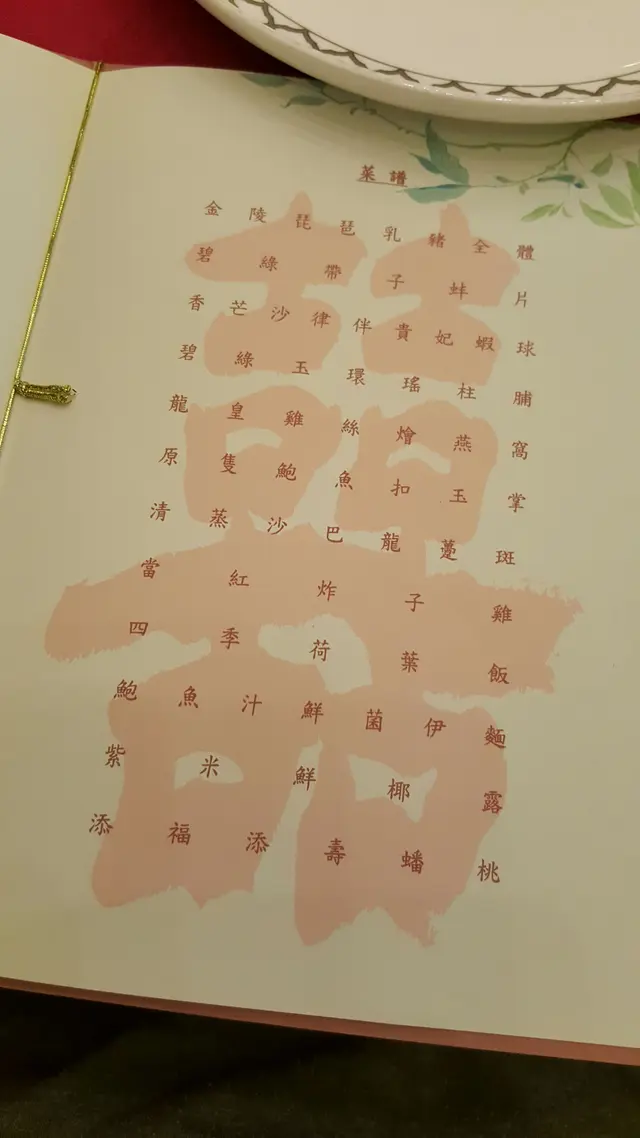 菜譜
金陵琵琶乳豬全體
碧綠帶子蚌片
香芒沙律伴貴妃蝦球
碧綠玉環瑤柱脯
龍皇雞絲燴燕窩
原隻鮑魚扣玉掌
清蒸沙巴龍躉斑
當紅炸子雞
四季荷葉飯
鮑魚汁鮮菌伊麵
紫米鮮椰露
添福添壽蟠桃
囍